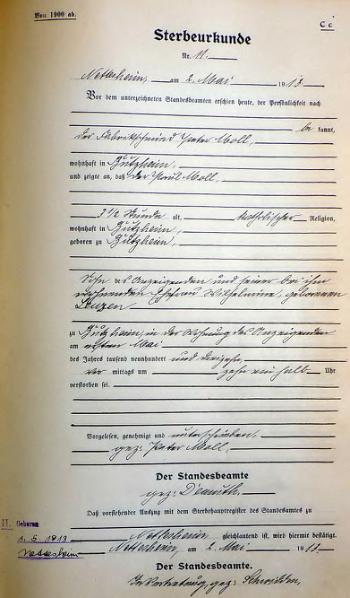 Von 1900 ab.
C c
Sterbeurkunde
Nr. 11.
Nettesheim, am 2. Mai 1913.
Vor dem unterzeichneten Standesbeamten erschien heute, der Persönlichkeit nach
be kannt,
der Fabrikschmied Peter Moll,
wohnhaft in Butzheim,
und zeigte an, daß der Paul Moll,
3 1/2 Stunde alt, katholischer Religion,
wohnhaft in Butzheim,
geboren zu Butzheim,
Sohn des Anzeigenden und seiner bei ihm
wohnenden Ehefrau Wilhelmine, geborenen
zu Butzheim, in der Wohnung des Anzeigenden
am ersten Mai
des Jahres tausend neunhundert und dreizehn,
vor mittags um zehn ein halb Uhr
verstorben sei.
Vorgelesen, genehmigt und unterschrieben.
gez: Peter Moll.
Der Standesbeamte
gez:
Daß vorstehender Auszug mit dem Sterbehauptregister des Standesamts zu
Nettesheim gleichlautend ist, wird hiermit bestätigt.
Nettesheim, am 2. Mai 1913.
Der Standesbeamte.
In Vertretung, gez:
Geboren
1. 5. 1913
Nettesheim